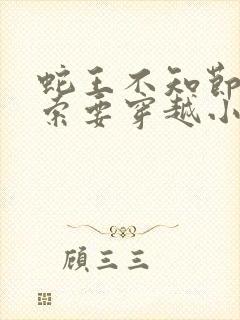 蛇王不知節
索要穿越小
顧三三